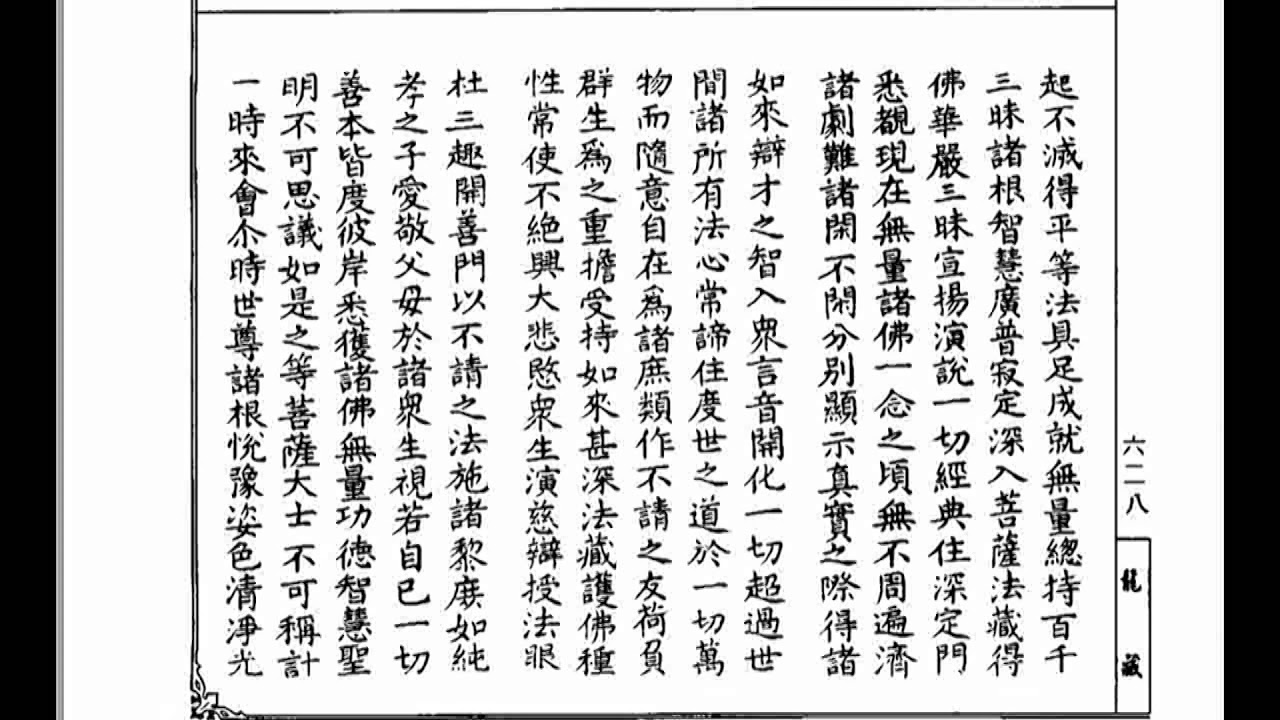 起不滅得平等法具足成就無量總持百千
三昧諸根智慧廣普寂定深入菩薩法藏得
佛華嚴三昧宣揚演說一切經典住深定門
悉覩現在無量諸佛一念之頃無不周遍濟
諸劇難諸閑不閑分別顯示真實之際得諸
如來辯才之智入眾言音開化一切超過世
間諸所有法心常諦住度世之道於一切萬
物而隨意自在為諸庶類作不請之友荷負
群生為之重擔受持如來甚深法藏護佛種
性常使不絕興大悲愍眾生演慈辯授法眼
杜三趣開善門以不請之法施諸黎庶如純
孝之子愛敬父母於諸眾生視若自己一切
善本皆度彼岸悉獲諸佛無量功德智慧聖
明不可思議如是之等菩薩大士不可稱計
一時來會尒時世尊諸根悅豫姿色清淨光
六二八
龍藏